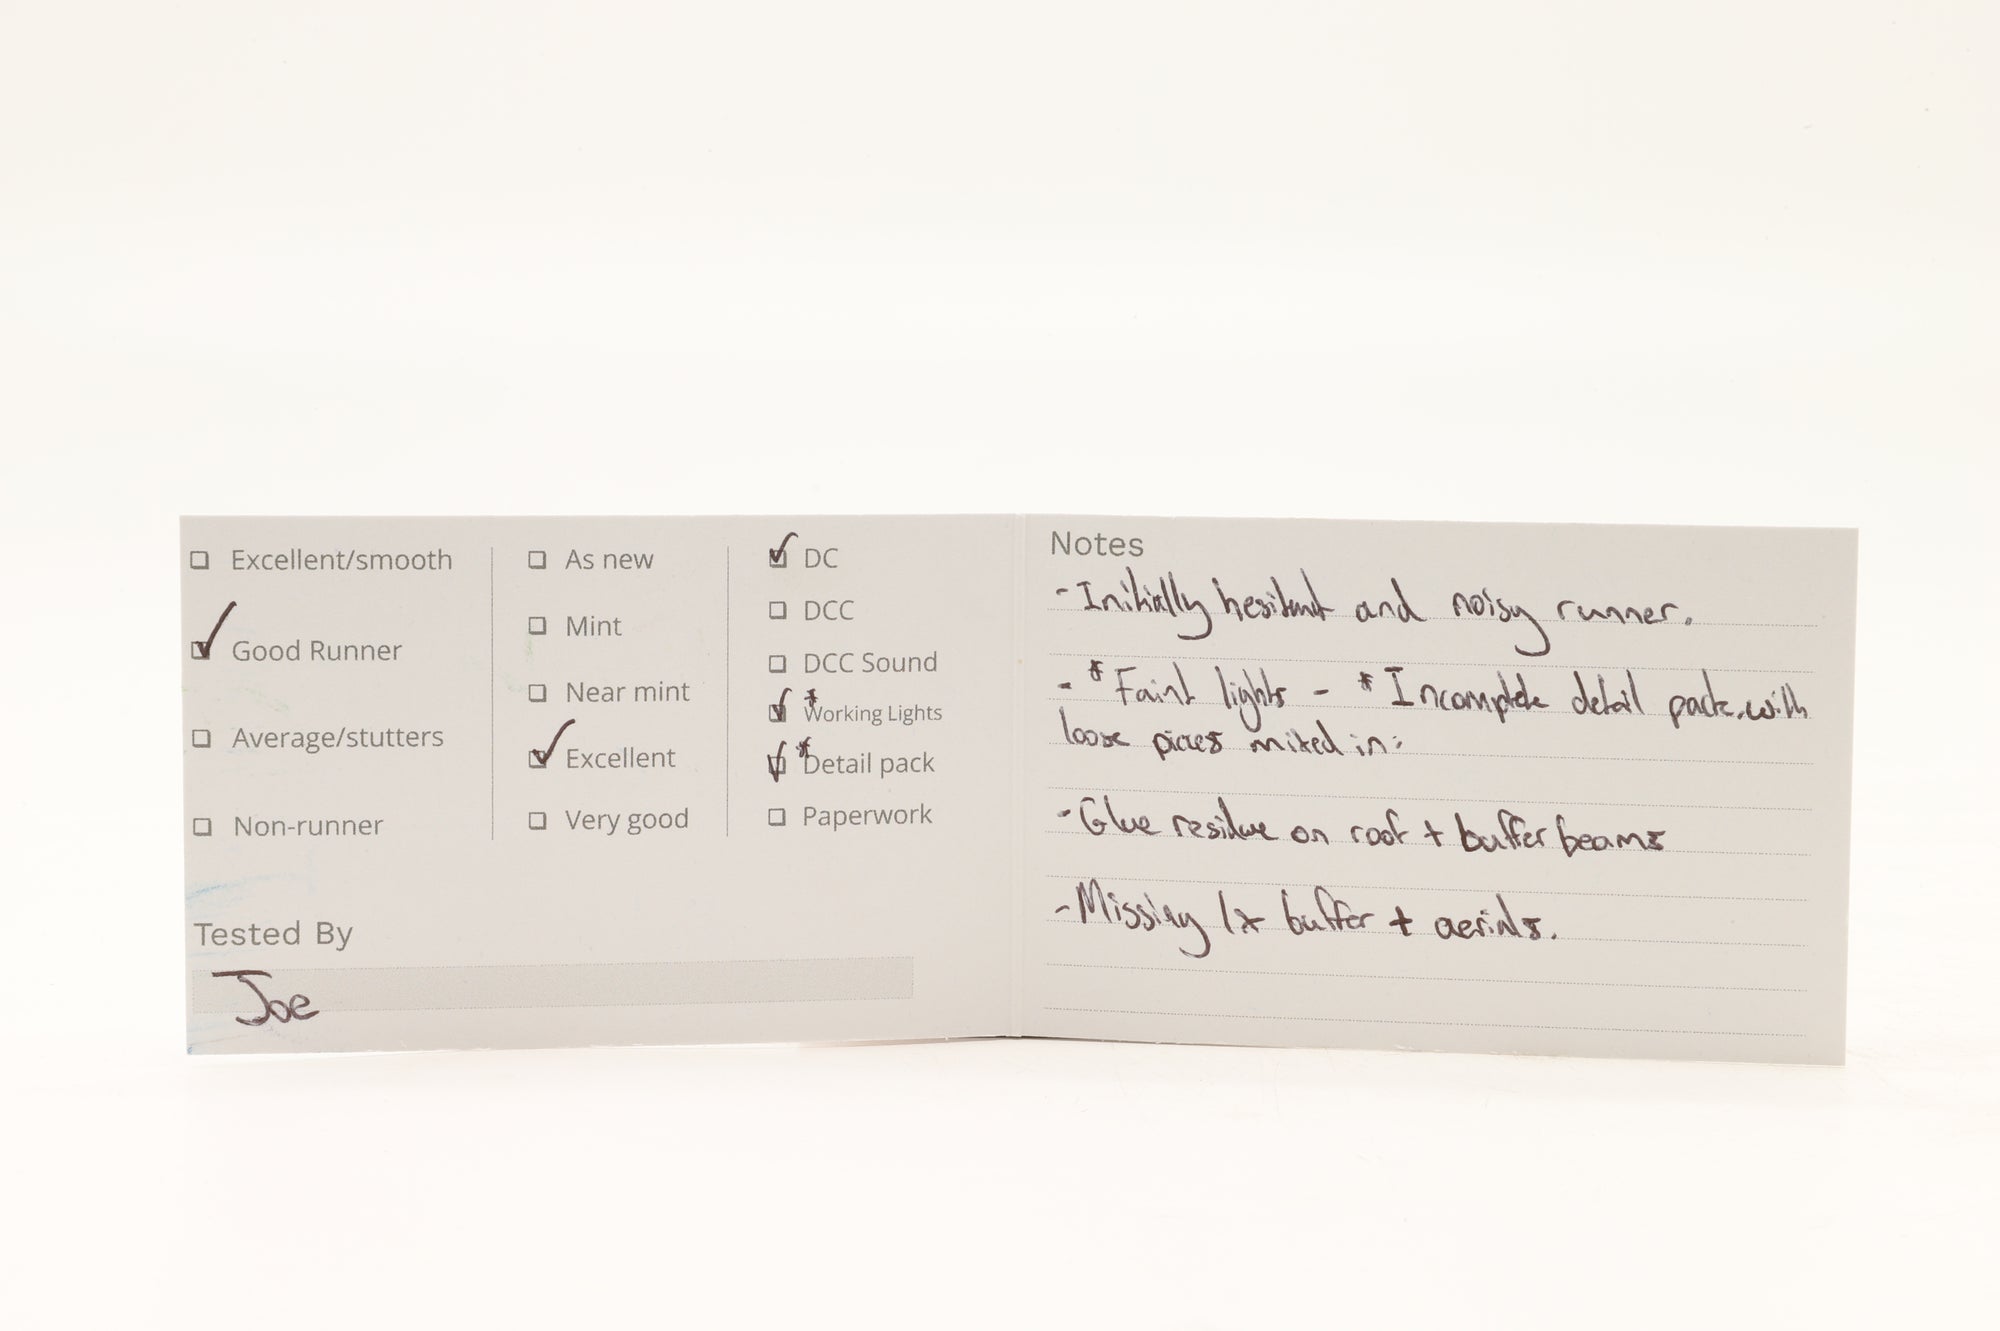 Excellent/smooth
Good Runner
Average/stutters
Non-runner
As new
Mint
Near mint
Excellent
Very good
DC
DCC
DCC Sound
*Working Lights
*Detail pack
Paperwork
Tested By
Joe
Notes
- Initially hesitant and noisy runner.
- *Faint lights - *Incomplete detail pack. with
loose pieces mixed in.
- Glue residue on roof + buffer beams
- Missing 1x buffer + aerials.